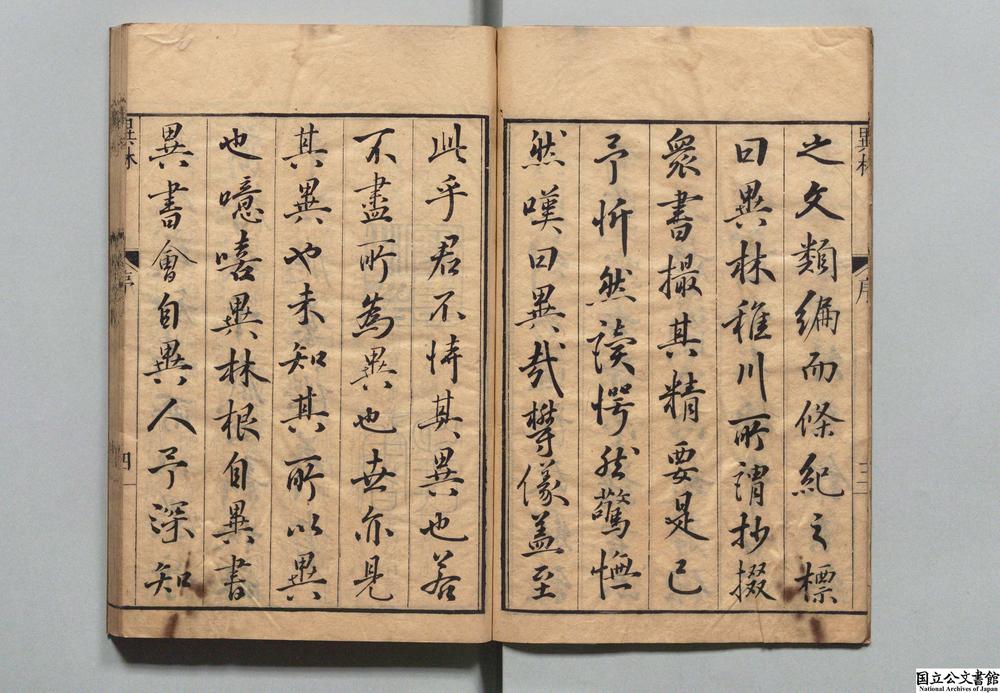 異林
序
三
之文類編而條紀之標
曰異林稚川所謂抄掇
衆書撮其精要是已
予忻然讀愕然驚憮
然嘆曰異哉欎儀盖至
此乎君不恃其異也若
不盡所為異也世亦見
其異也未知其所以異
也噫嘻異林根自異書
異書會自異人予深知
異林
序
四
国立公文書館
National Archives of Japan